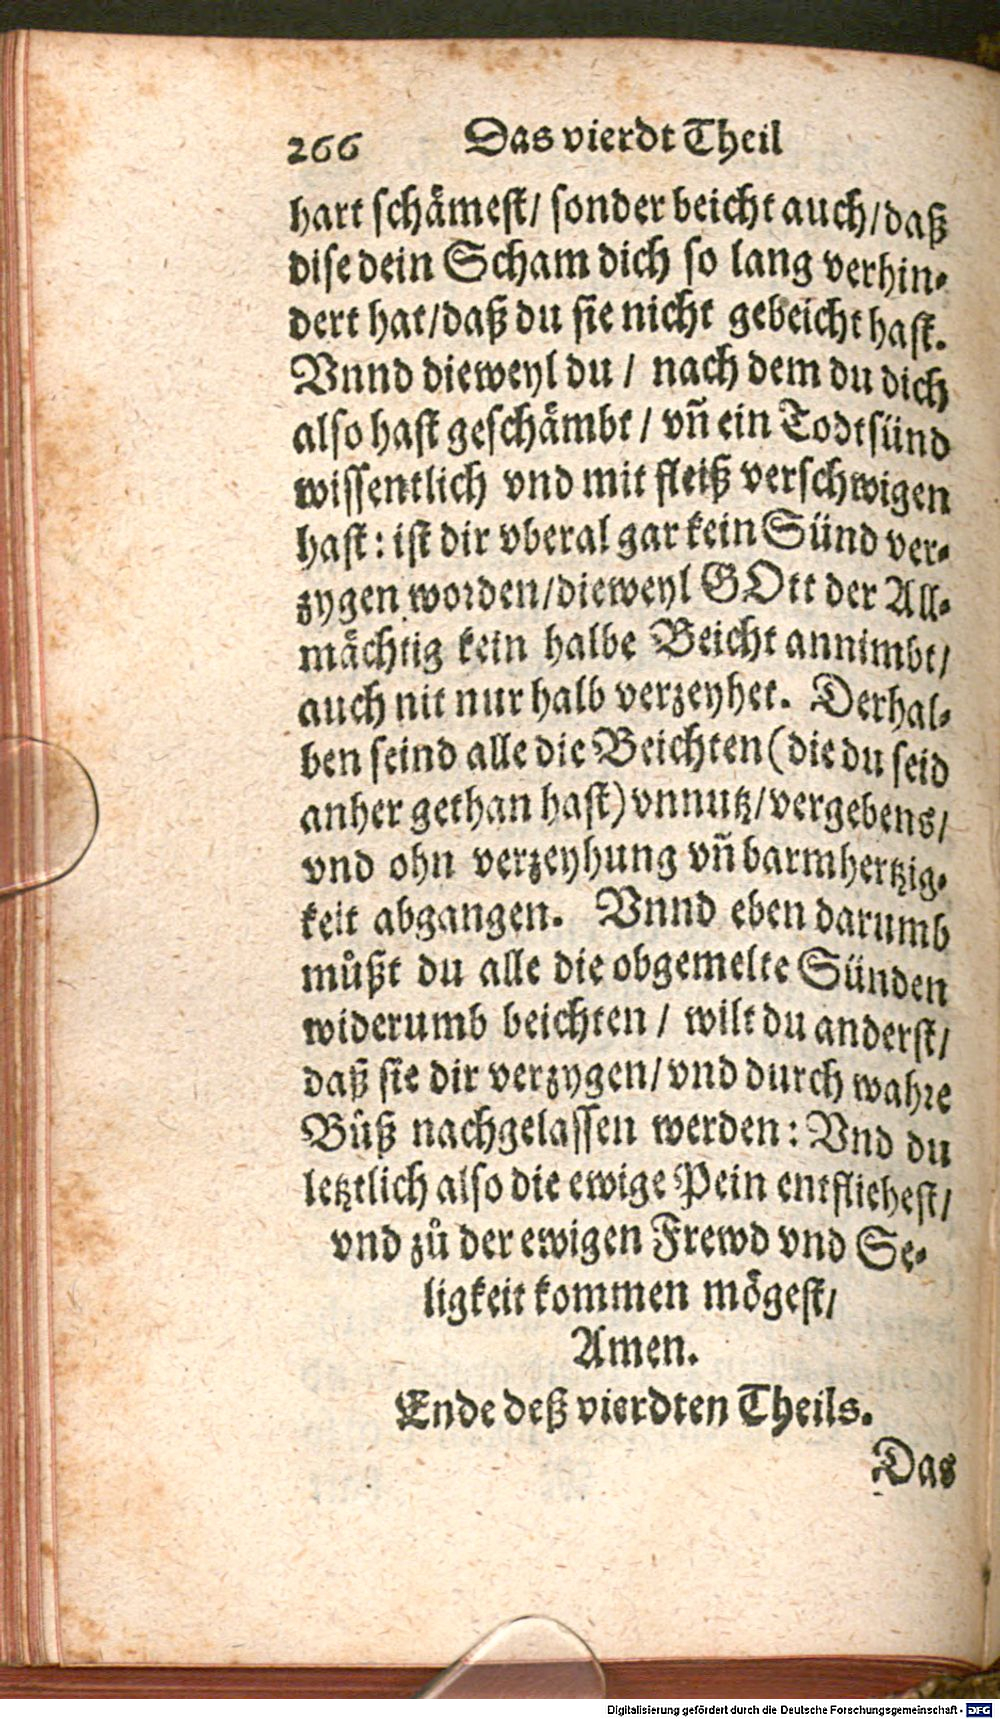 266 Das vierdt Theil
hart schämest/ sonder beicht auch/ daß
dise dein Scham dich so lang verhin-
dert hat/ daß du sie nicht gebeicht hast.
Vnnd dieweyl du/ nach dem du dich
also hast geschämbt/ vñ ein Todtsünd
wissentlich vnd mit fleiß verschwigen
hast: ist dir vberal gar kein Sünd ver-
zygen worden/ dieweyl GOtt der All-
mächtig kein halbe Beicht annimbt/
auch nit nur halb verzeyhet. Derhal-
ben seind alle die Beichten (die du seid
anher gethan hast) vnnutz/ vergebens/
vnd ohn verzeyhung vñ barmhertzig-
keit abgangen. Vnnd eben darumb
můßt du alle die obgemelte Sünden
widerumb beichten/ wilt du anderst/
daß sie dir verzygen/ vnd durch wahre
Bůß nachgelassen werden: Vnd du
letztlich also die ewige Pein entfliehest/
vnd zů der ewigen Frewd vnd Se-
ligkeit kommen mögest/
Amen.
Ende deß vierdten Theils.
Das
Digitalisierung gefördert durch die Deutsche Forschungsgemeinschaft - DFG